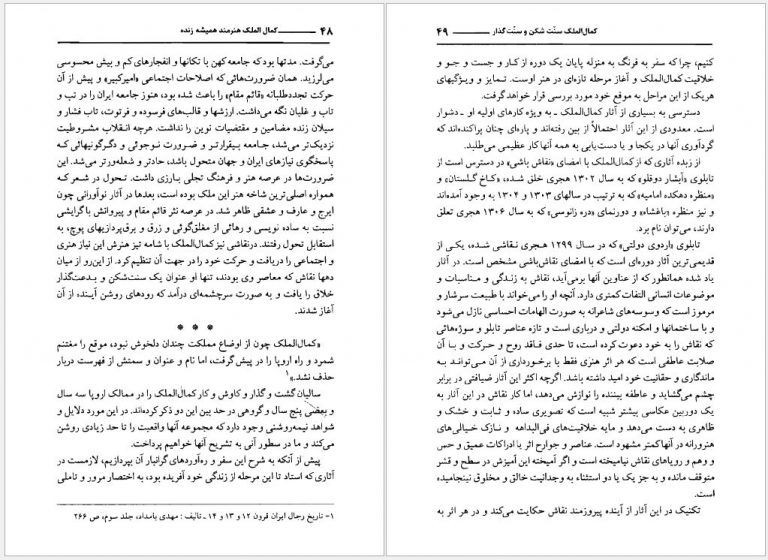 ۴۸ کمال الملک هنرمند همیشه زنده
می‌گرفت. مدتها بود که جامعه کهن با تکانها و انفجارهای کم و بیش محسوسی
می‌لرزید. همان ضرورت‌هائی که اصلاحات اجتماعی «امیرکبیر» و پیش از آن
حرکت تجددطلبانه «قائم مقام» را باعث شده بود، هنوز جامعه ایران را در تب و
تاب و غلیان نگه می‌داشت. ارزشها و قالب‌های فرسوده و فرتوت، تاب فشار و
سیلان زنده مضامین و مقتضیات نوین را نداشت. هرچه انقلاب مشروطیت
نزدیک‌تر می‌شد، جامعه بیقرارتر و ضرورت نوجوئی و دگرگونیهائی که
پاسخگوی نیازهای ایران و جهان متحول باشد، حادتر و شعله‌ورتر می‌شد. این
ضرورت‌ها در عرصه هنر و فرهنگ تجلی بارزی داشت. تحول در شعر که
همواره اصلی‌ترین شاخه هنر این ملک بوده است، بعدها در آثار نوآورانی چون
ایرج و عارف و عشقی ظاهر شد. در عرصه نثر قائم مقام و پیروانش با گرایشی
نسبت به ساده نویسی و رهائی از مغلق‌گوئی و زرق و برق‌پردازیهای پوچ، به
استقبال تحول رفتند. درنقاشی نیز کمال‌الملک با شامه تیز هنرش این نیاز هنری
و اجتماعی را دریافت و حرکت خود را در جهت آن تنظیم کرد. از این‌رو از میان
دهها نقاش که معاصر وی بودند، تنها او عنوان یک سنت‌شکن و بدعت‌گذار
خلاق را یافت و به صورت سرچشمه‌ای درآمد که رودهای روشن آینده از آن
آغاز شدند.
* * *
«کمال‌الملک چون از اوضاع مملکت چندان دلخوش نبود، موقع را مغتنم
شمرد و راه اروپا را در پیش گرفت، اما نام و عنوان و سمتش از فهرست دربار
حذف نشد.»۱
سالیان گشت و گذار و کاوش و کار کمال‌الملک را در ممالک اروپا سه سال
و بعضی پنج سال و گروهی در حد بین این دو ذکر کرده‌اند. در این مورد دلایل و
شواهد نیمه‌روشنی وجود دارد که مجموعه آنها واقعیت را تا حد زیادی روشن
می‌کند و ما در سطور آتی به تشریح آنها خواهیم پرداخت.
پیش از آنکه به شرح این سفر و ره‌آوردهای گرانبار آن بپردازیم، لازمست در
آثاری که استاد تا این مرحله از زندگی خود آفریده بود، به اختصار مرور و تاملی
۱- تاریخ رجال ایران قرون ۱۲ و ۱۳ و ۱۴ ـ تالیف: مهدی بامداد، جلد سوم، ص ۲۶۶
کمال‌الملک سنّت شکن و سنّت گذار ۴۹
کنیم، چرا که سفر به فرنگ به منزله پایان یک دوره از کار و جست و جو و
خلاقیت کمال‌الملک و آغاز مرحله تازه‌ای در هنر اوست. تمایز و ویژگیهای
هریک از این مراحل به موقع خود مورد بررسی قرار خواهدگرفت.
دسترسی به بسیاری از آثار کمال‌الملک ـ به ویژه کارهای اولیه او ـ دشوار
است. معدودی از این آثار احتمالاً از بین رفته‌اند و پاره‌ای چنان پراکنده‌اند که
گردآوری آنها در یکجا و یا دست‌یابی به همه آنها کار عظیمی می‌طلبد.
از زبده آثاری که ازکمال‌الملک با امضای «نقاش باشی» در دسترس است از
تابلوی «آبشار دوقلو» که به سال ۱۳۰۲ هجری خلق شده، «کاخ گلستان» و
«منظره دهکده امامیه» که به ترتیب در سالهای ۱۳۰۳ و ۱۳۰۴ به وجود آمده‌اند
و نیز منظره «باغشاه» و دورنمای «دره زانوسی» که به سال ۱۳۰۶ هجری تعلق
دارند، می‌توان نام برد.
تابلوی «اردوی دولتی» که در سال ۱۲۹۹ هجری نقاشی شده، یکی از
قدیمی‌ترین آثار دوره‌ای است که با امضای نقاش‌باشی مشخص است. در آثار
یاد شده همانطور که از عناوین آنها برمی‌آید، نقاش به زندگی و مناسبات و
موضوعات انسانی التفات کمتری دارد. آنچه او را می‌خواند یا طبیعت سرشار و
مرموز است که وسوسه‌های شاعرانه به صورت الهامات احساسی نازل می‌شود
و یا ساختمانها و امکنه دولتی و درباری است و تازه عناصر تابلو و سوژه‌هائی
که نقاش را به خود دعوت کرده است، تا حدی فاقد روح و حرکت و یا آن
صلابت عاطفی است که هر اثر هنری فقط با برخورداری از آن می‌تواند به
ماندگاری و حقانیت خود امید داشته باشد. اگرچه اکثر این آثار ضیافتی در برابر
چشم می‌گشاید و عاطفه بیننده را نوازش می‌دهد، اما کار نقاش در این آثار به
یک دوربین عکاسی بیشتر شبیه است که تصویری ساده و ثابت و خشک و
ظاهری به دست می‌دهد و مایه خلاقیت‌های فی‌البداهه و نازک خیالی‌های
هنرورانه در آنها کمتر مشهود است. عناصر و جوارح اثر با ادراکات عمیق و حس
و وهم و رویاهای نقاش نیامیخته است و اگر آمیخته این آمیزش در سطح و قشر
متوقف مانده و به جز یک یا دو استثناء به وجدانیت خالق و مخلوق نینجامیده
است.
تکنیک در این آثار از آینده پیروزمند نقاش حکایت می‌کند و در هر اثر به